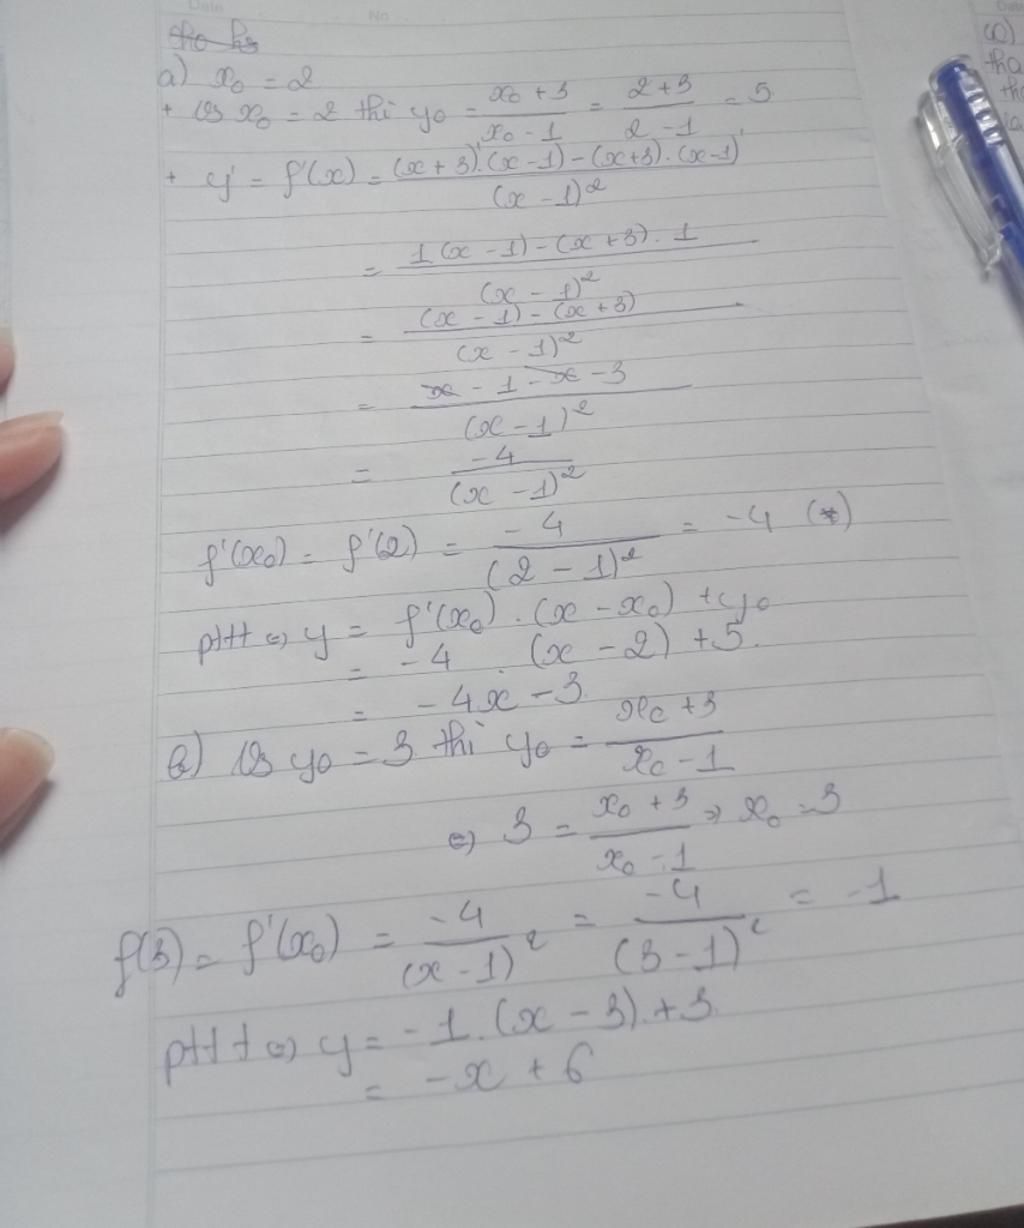 Date
No
cho hs
a) x₀ = 2
+ Với x₀ = 2 thì y₀ = (x₀ + 3)/(x₀ - 1) = (2+3)/(2-1) = 5
+ y' = f'(x) = ((x+3)'.(x-1)-(x+3).(x-1)')/(x-1)²
= (1(x-1)-(x+3).1)/(x-1)²
= ((x-1)-(x+3))/(x-1)²
= (x-1-x-3)/(x-1)²
= -4/(x-1)²
f'(x₀) = f'(2) = -4/(2-1)² = -4 (*)
pttt ⇔ y = f'(x₀).(x-x₀)+y₀
= -4.(x-2)+5.
= -4x-3
b) Với y₀ = 3 thì y₀ = (x₀+3)/(x₀-1)
⇔ 3 = (x₀+3)/(x₀-1) ⇒ x₀ = 3
f(3) = f'(x₀) = -4/(x-1)² = -4/(3-1)² = -1
pttt ⇔ y = -1.(x-3).+3.
= -x+6
Date